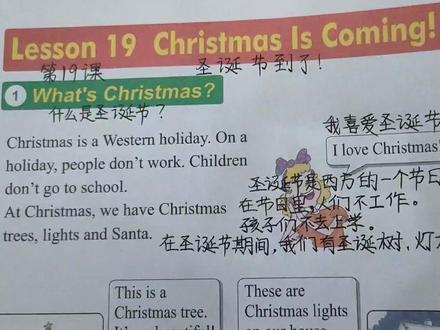 Lesson 19 Christmas Is Coming!
第19课 圣诞节到了！
1 What's Christmas?
什么是圣诞节？
我喜爱圣诞节
Christmas is a Western holiday. On a
holiday, people don't work. Children
don't go to school.
At Christmas, we have Christmas
trees, lights and Santa.
I love Christmas!
圣诞节是西方的一个节日
在节日里，人们不工作。
孩子们不去上学。
在圣诞节期间，我们有圣诞树，灯
This is a
Christmas tree.
These are
Christmas lights